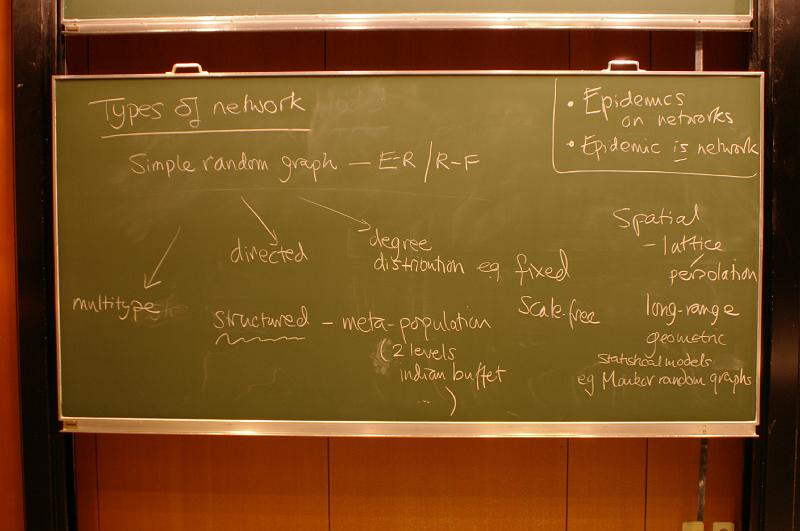 Types of network
• Epidemics
on networks
• Epidemic is network
Simple random graph — ER/R-F
directed
degree
distribution eg fixed
scale-free
multitype
structured - meta-population
(2 levels
indian buffet
...)
Spatial
- lattice
percolation
long-range
geometric
Statistical models
eg Markov random graphs